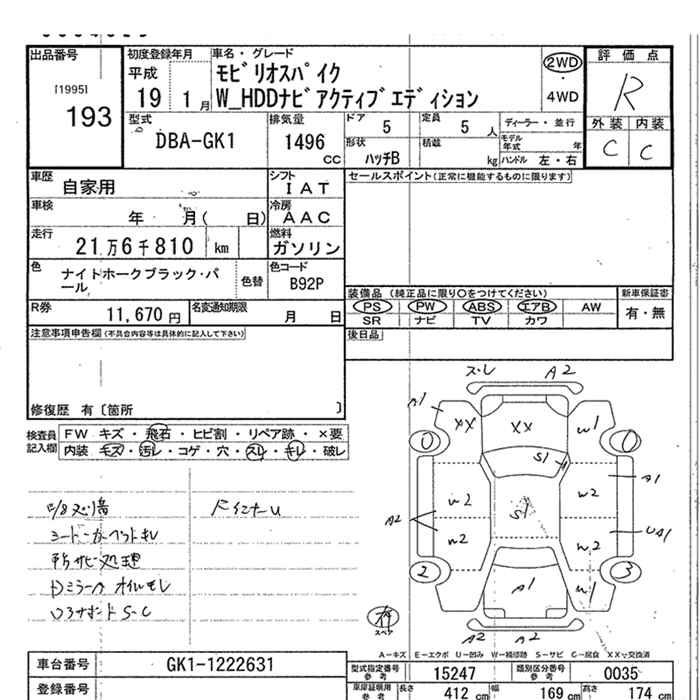 出品番号
[1995]
193
初度登録年月
平成
19 1月
車名・グレード
モビリオスパイク
W_HDDナビアクティブエディション
2WD
4WD
評価点
R
外装 内装
C C
型式
DBA-GK1
排気量
1496
CC
ドア 5
定員 5 人
ディーラー・並行
形状
ハッチB
積載
kg
モデル年式 年
ハンドル 左・右
車歴 自家用
シフト
I AT
車検 年 月( 日)
冷房
AAC
走行 21万6千810 km
燃料
ガソリン
色 ナイトホークブラック・パール
色替
色コード
B92P
R券 11,670円
名変通知期限 月 日
セールスポイント(正常に機能するものに限ります)
装備品 (純正品に限り〇をつけてください)
PS PW ABS エアB AW
SR ナビ TV カワ
新車保証書
有・無
後日品
注意事項申告欄(不具合内容等は具体的に記入して下さい)
修復歴 有〔箇所 〕
検査員記入欄
FW キズ・飛石・ヒビ割・リペア跡・×要
内装 キズ・汚レ・コゲ・穴・スレ・キレ・破レ
シートカーペットキレ
所々サビ処理
Dミラーカ オイルモレ
ロアサポートS-C
ドインナーU
スレ A2
A1 XX XX W1
0 0
S1 A1
W2 S1 W2
A2 W2 W2 UA1
2 3
A1 W1
スペア
A2 A2
A−キズ E−エクボ U−凹み W−補修跡 S−サビ C−腐食 XX−交換済
車台番号 GK1-1222631
登録番号
型式指定番号 参考 15247
類別区分番号 参考 0035
車庫証明用 参考
長さ 412 cm
幅 169 cm
高さ 174 cm